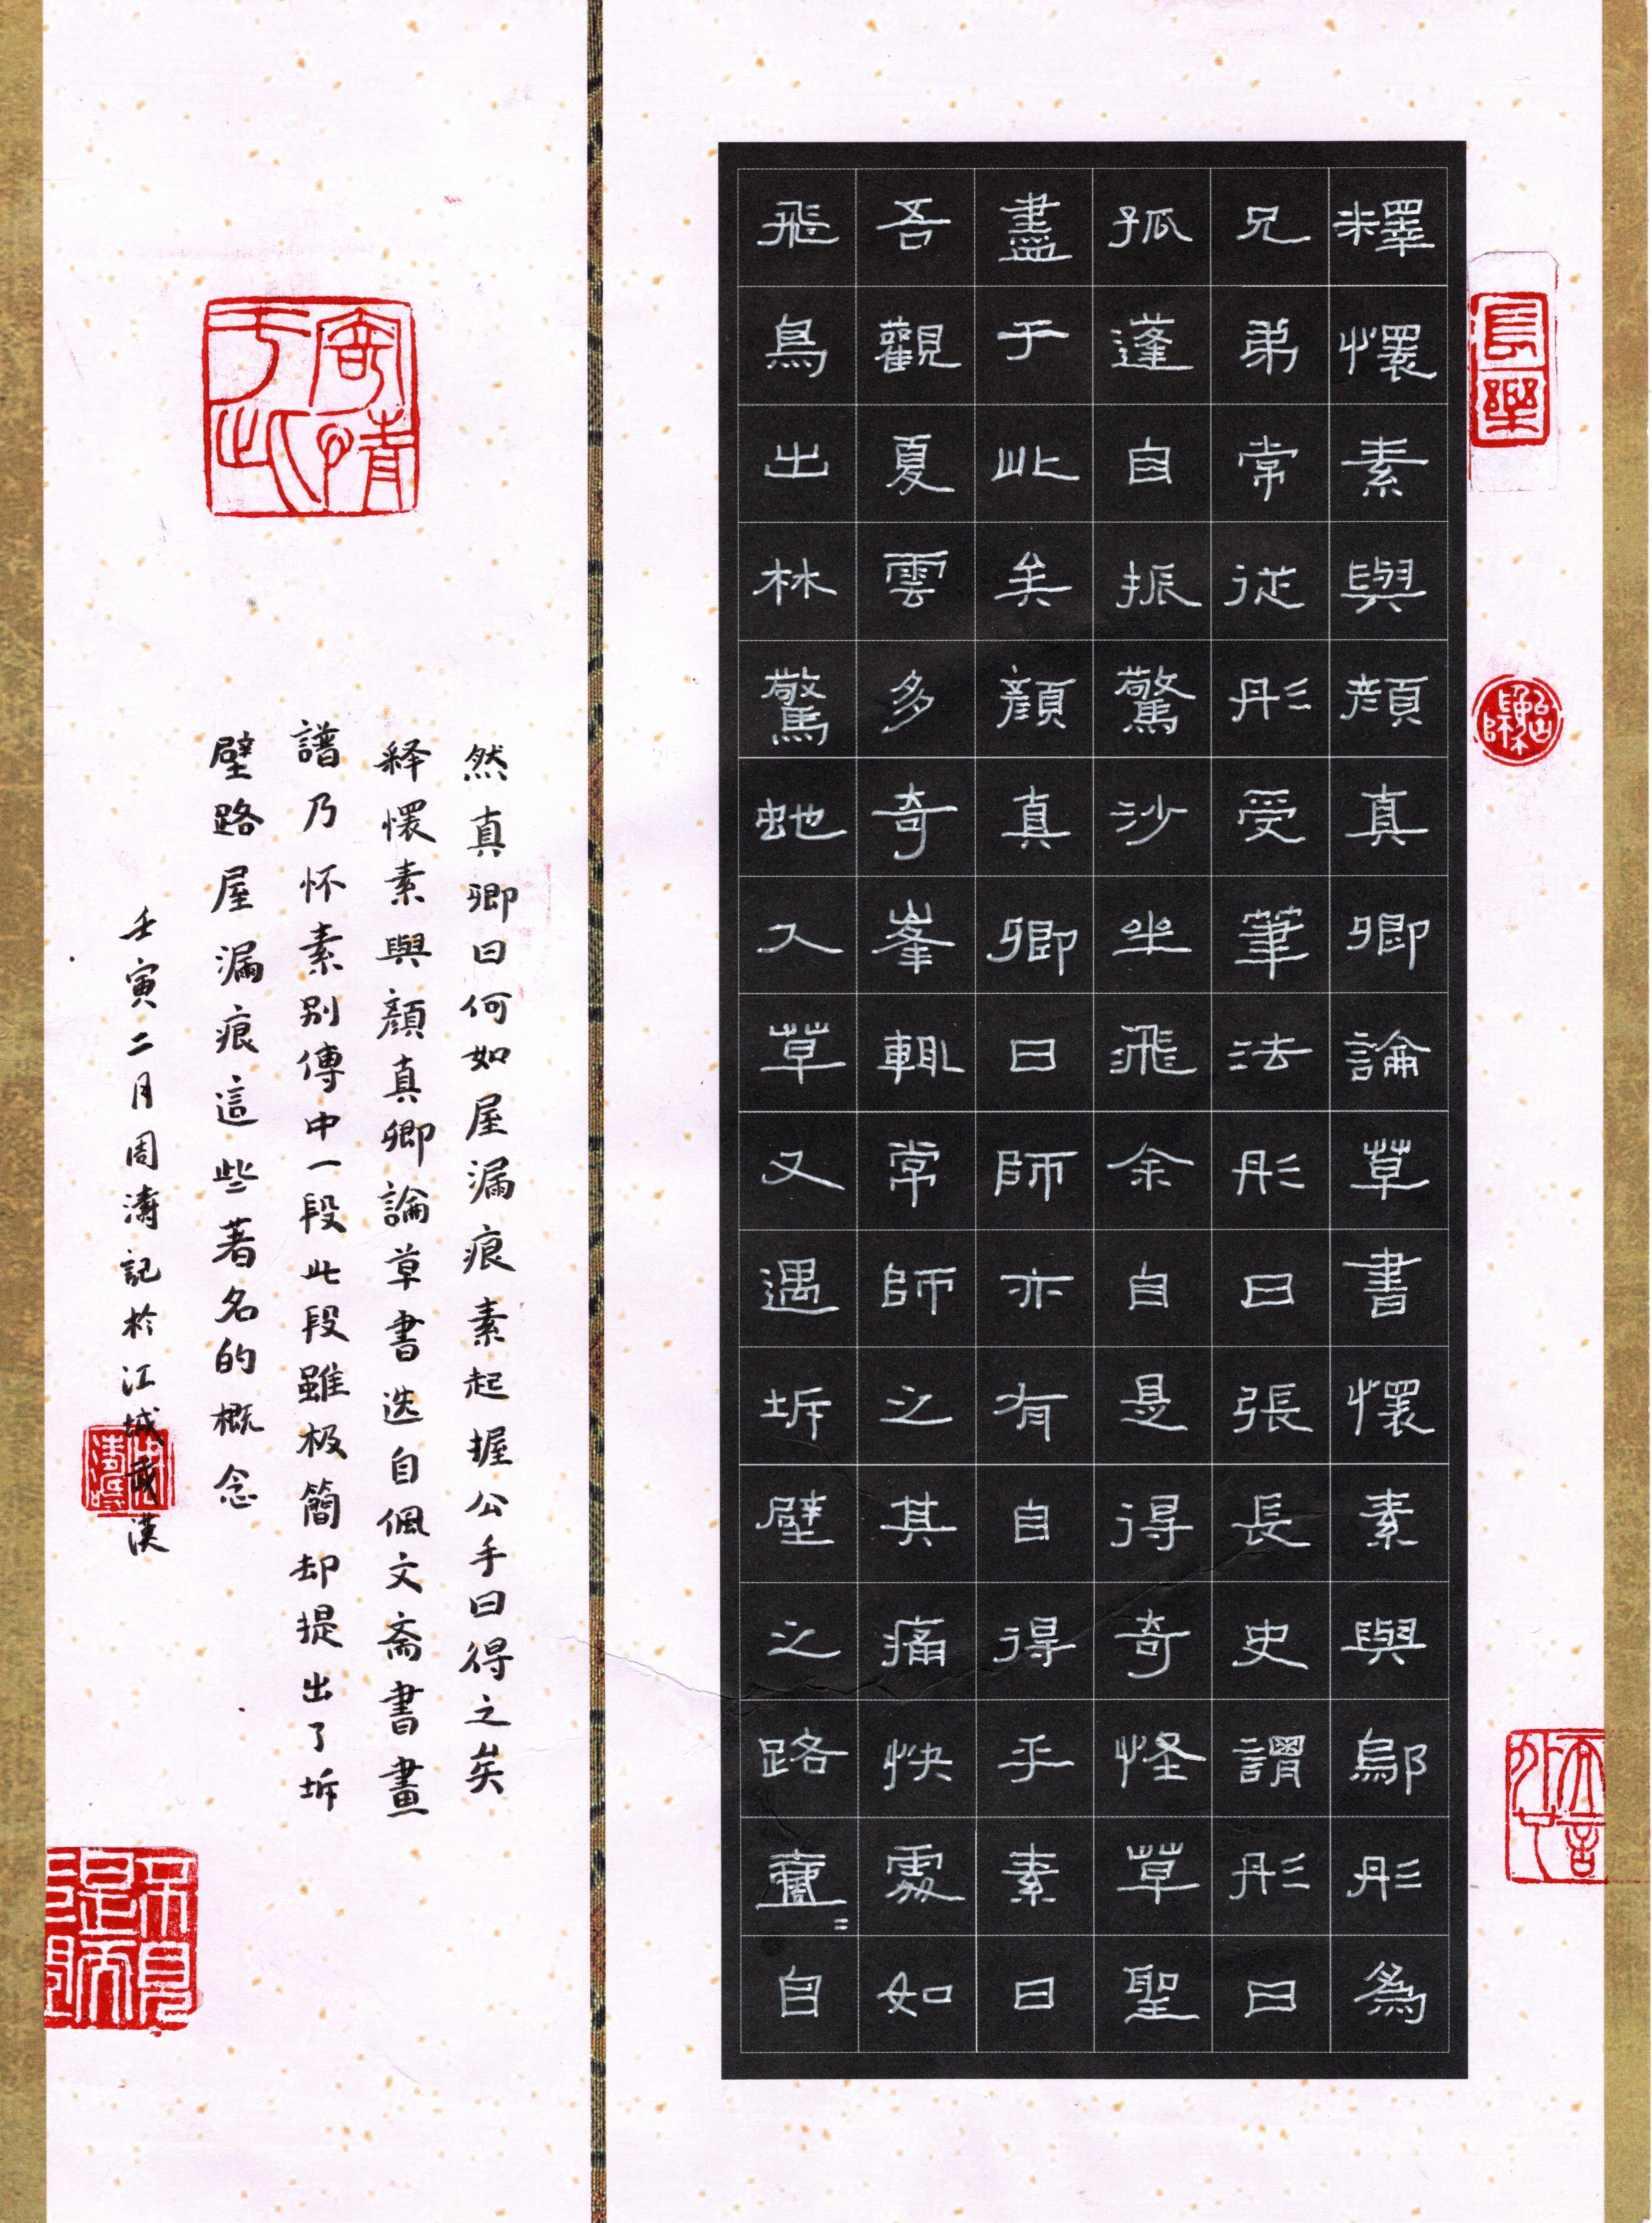 長樂
釋懷素與顏真卿論草書懷素與鄔彤為
兄弟常從彤受筆法彤曰張長史謂彤曰
孤蓬自振驚沙坐飛余自是得奇怪草聖
盡于此矣顏真卿曰師亦有自得乎素曰
吾觀夏雲多奇峯輒常師之其痛快處如
飛鳥出林驚虵入草又遇坼壁之路壹〻自
寄情于此
然真卿曰何如屋漏痕素起握公手曰得之矣
释懷素與顏真卿論草書选自佩文斋書畫
譜乃怀素别傳中一段此段雖极簡却提出了坼
壁路屋漏痕這些著名的概念
壬寅二月周濤記於江城武漢